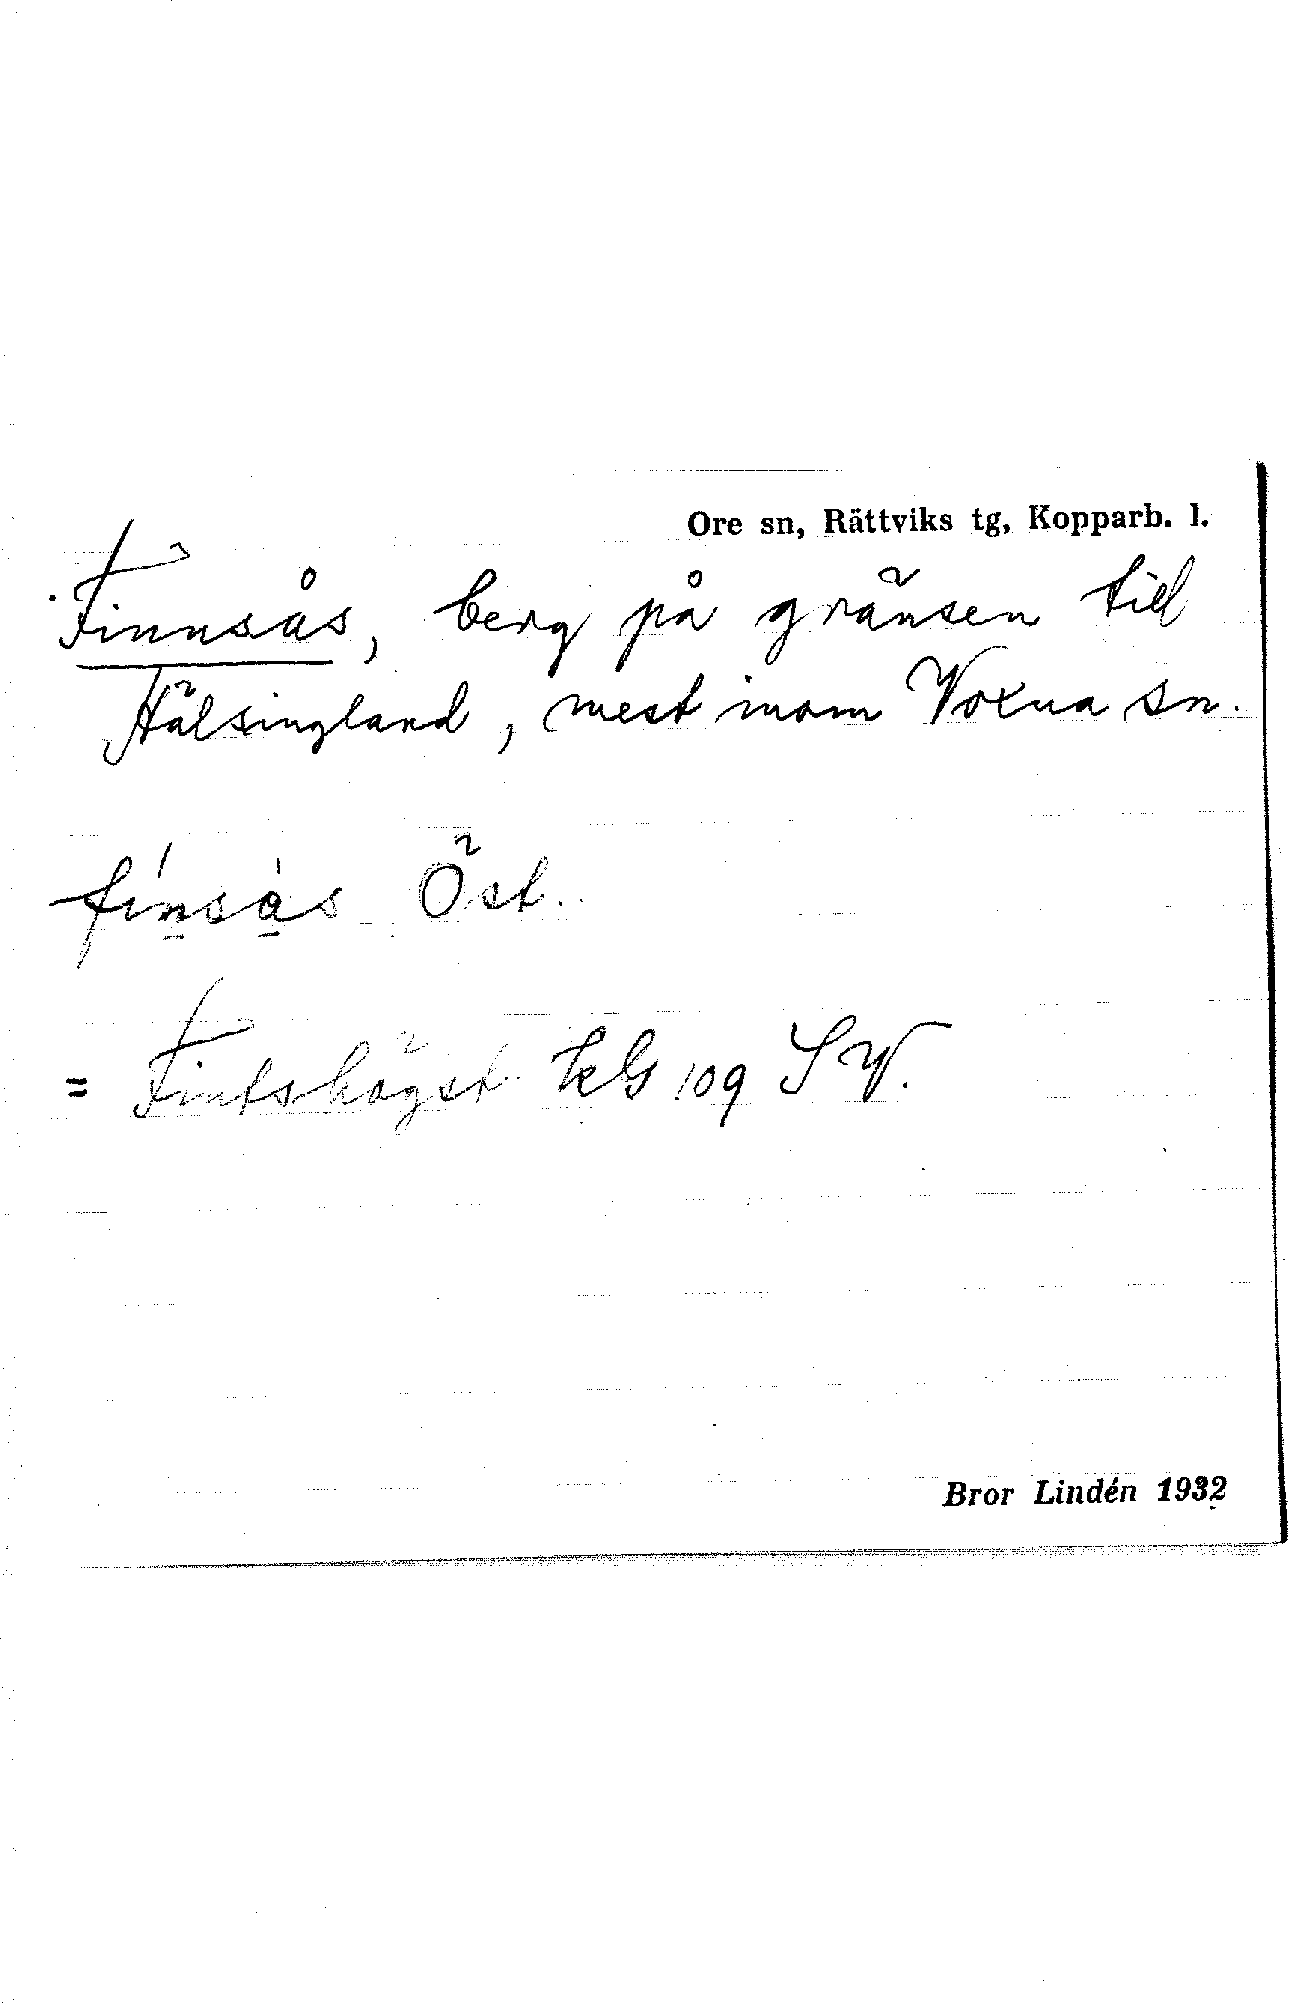 Ore sn, Rättviks tg, Kopparb. l.
Finnsås, berg på gränsen till
Hälsingland, mest inom Voxna sn.
fínsàs Öst.
= Fintshögst kbl 109 SV.
Bror Lindén 1932